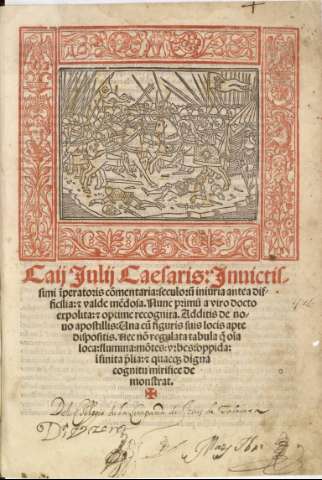 Caij Julij Caesaris: Invictis-
simi īperatoris cōmentaria: seculoꝝ iniuria antea dif-
ficilia: ⁊ valde mēdosa. Nunc primū a viro docto
expolita: ⁊ optime recognita. Additis de no-
vo apostillis: Una cū figuris suis locis apte
dispositis. Nec nō regulata tabula ꝙ oīa
loca: flumina: mōtes: vrbes: oppida:
īfinita p̄lia: ⁊ quaecq̃ digna
cognitu mirifice de
monstrat.
Del Collegio de la Compañia de Jesus de